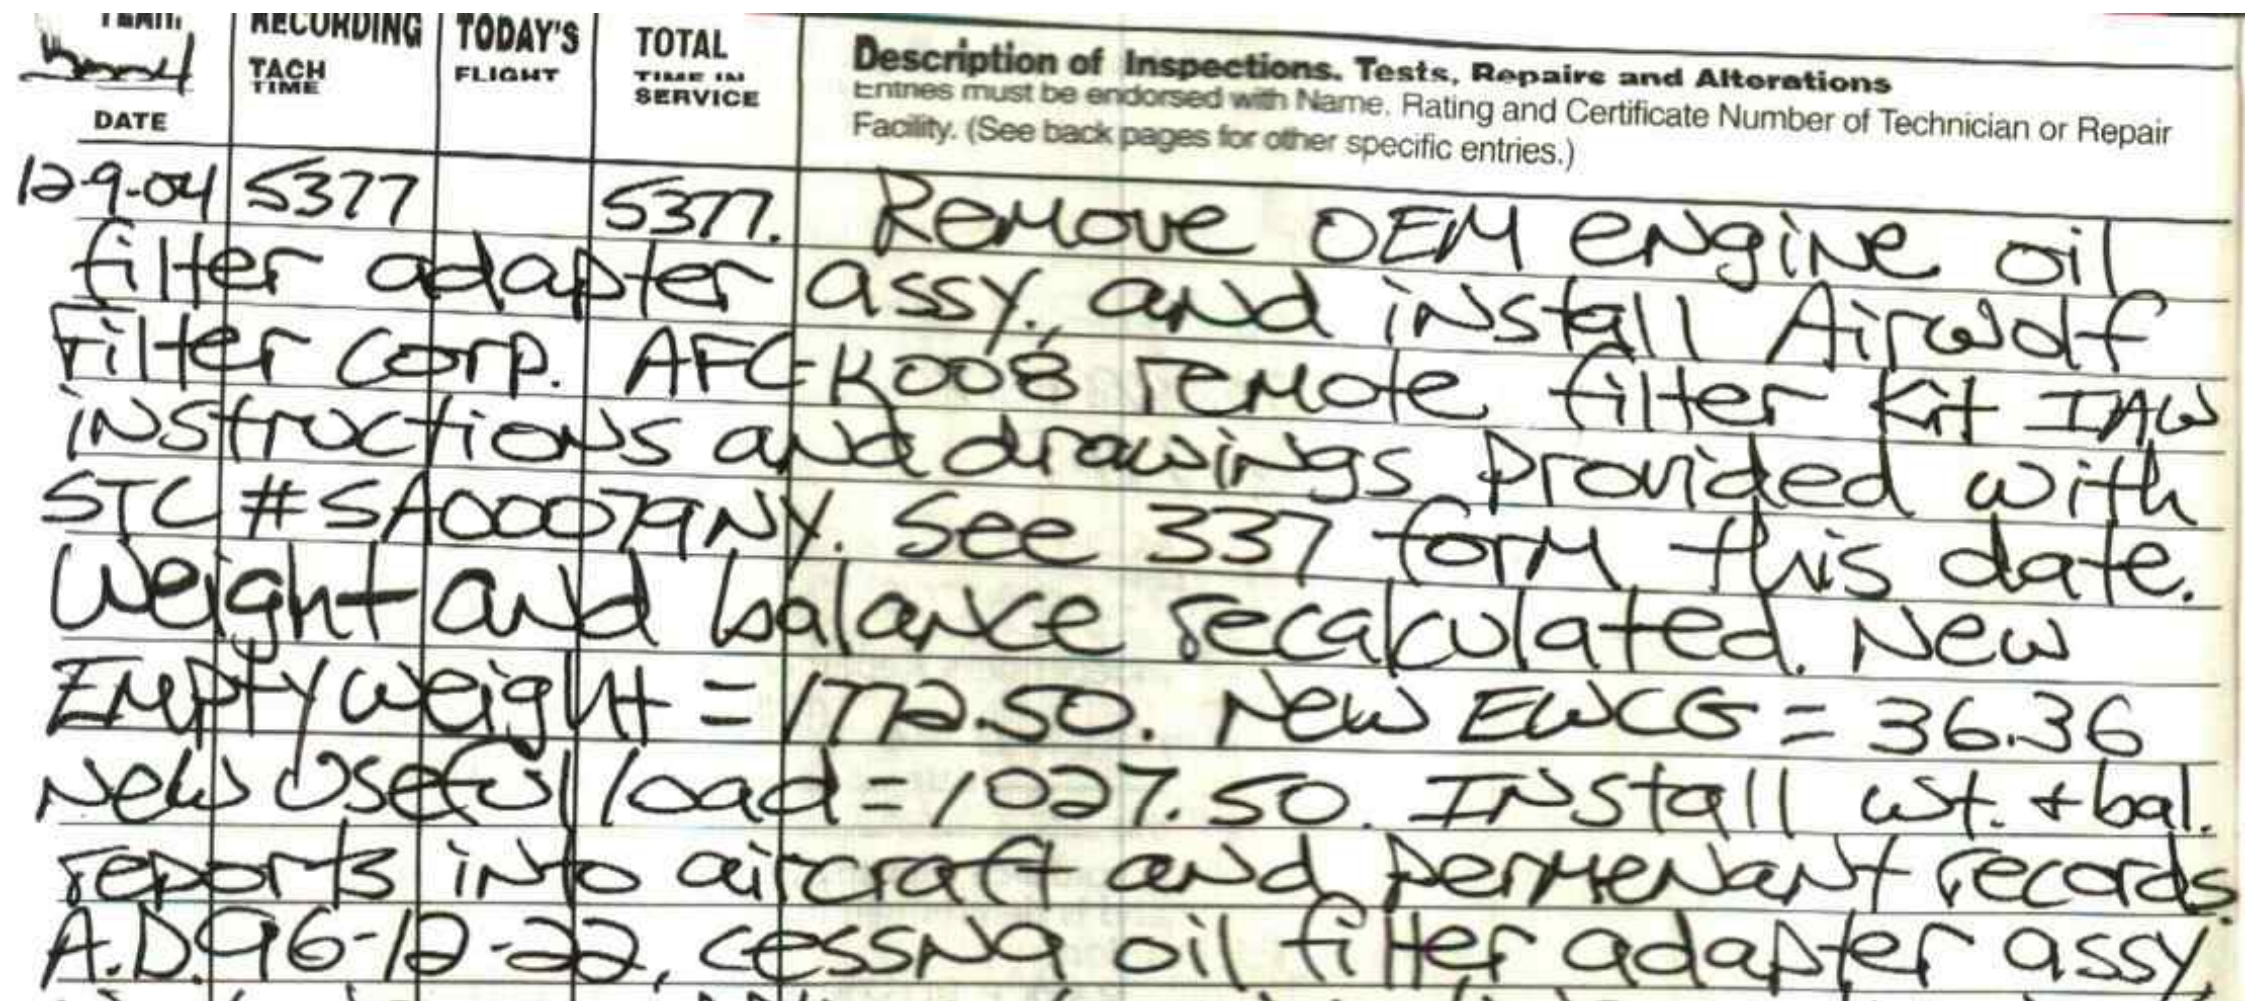 RECORDING TODAY'S TOTAL
TACH TIME FLIGHT TIME IN SERVICE
DATE
Description of Inspections, Tests, Repairs and Alterations
Entries must be endorsed with Name, Rating and Certificate Number of Technician or Repair
Facility. (See back pages for other specific entries.)
12-9-04 5377 5377. Remove OEM engine oil
filter adapter assy., and install Airwolf
Filter Corp. AFC-K008 remote filter Kit IAW
instructions and drawings provided with
STC #SA00079NY. See 337 form this date.
Weight and balance recalculated. New
Empty weight = 1772.50. New EWCG = 36.36
New Useful load = 1027.50. Install wt. + bal.
reports into aircraft and permenant records.
A.D. 96-12-22, cessna oil filter adapter assy,